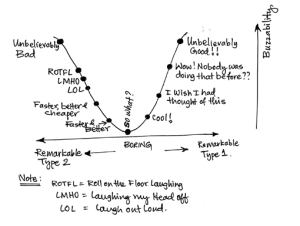 Unbelievably
Bad
ROTFL
LMHO
LOL
Faster, better &
cheaper
Faster &
better
so what?
Cool!
I Wish I had
thought of this
Wow! Nobody was
doing that before??
Unbelievably
Good!!
Buzzability
Remarkable
Type 2
BORING
Remarkable
Type 1.
Note:
ROTFL = Roll on the Floor Laughing
LMHO = Laughing my Head off
LOL = Laugh out Loud.